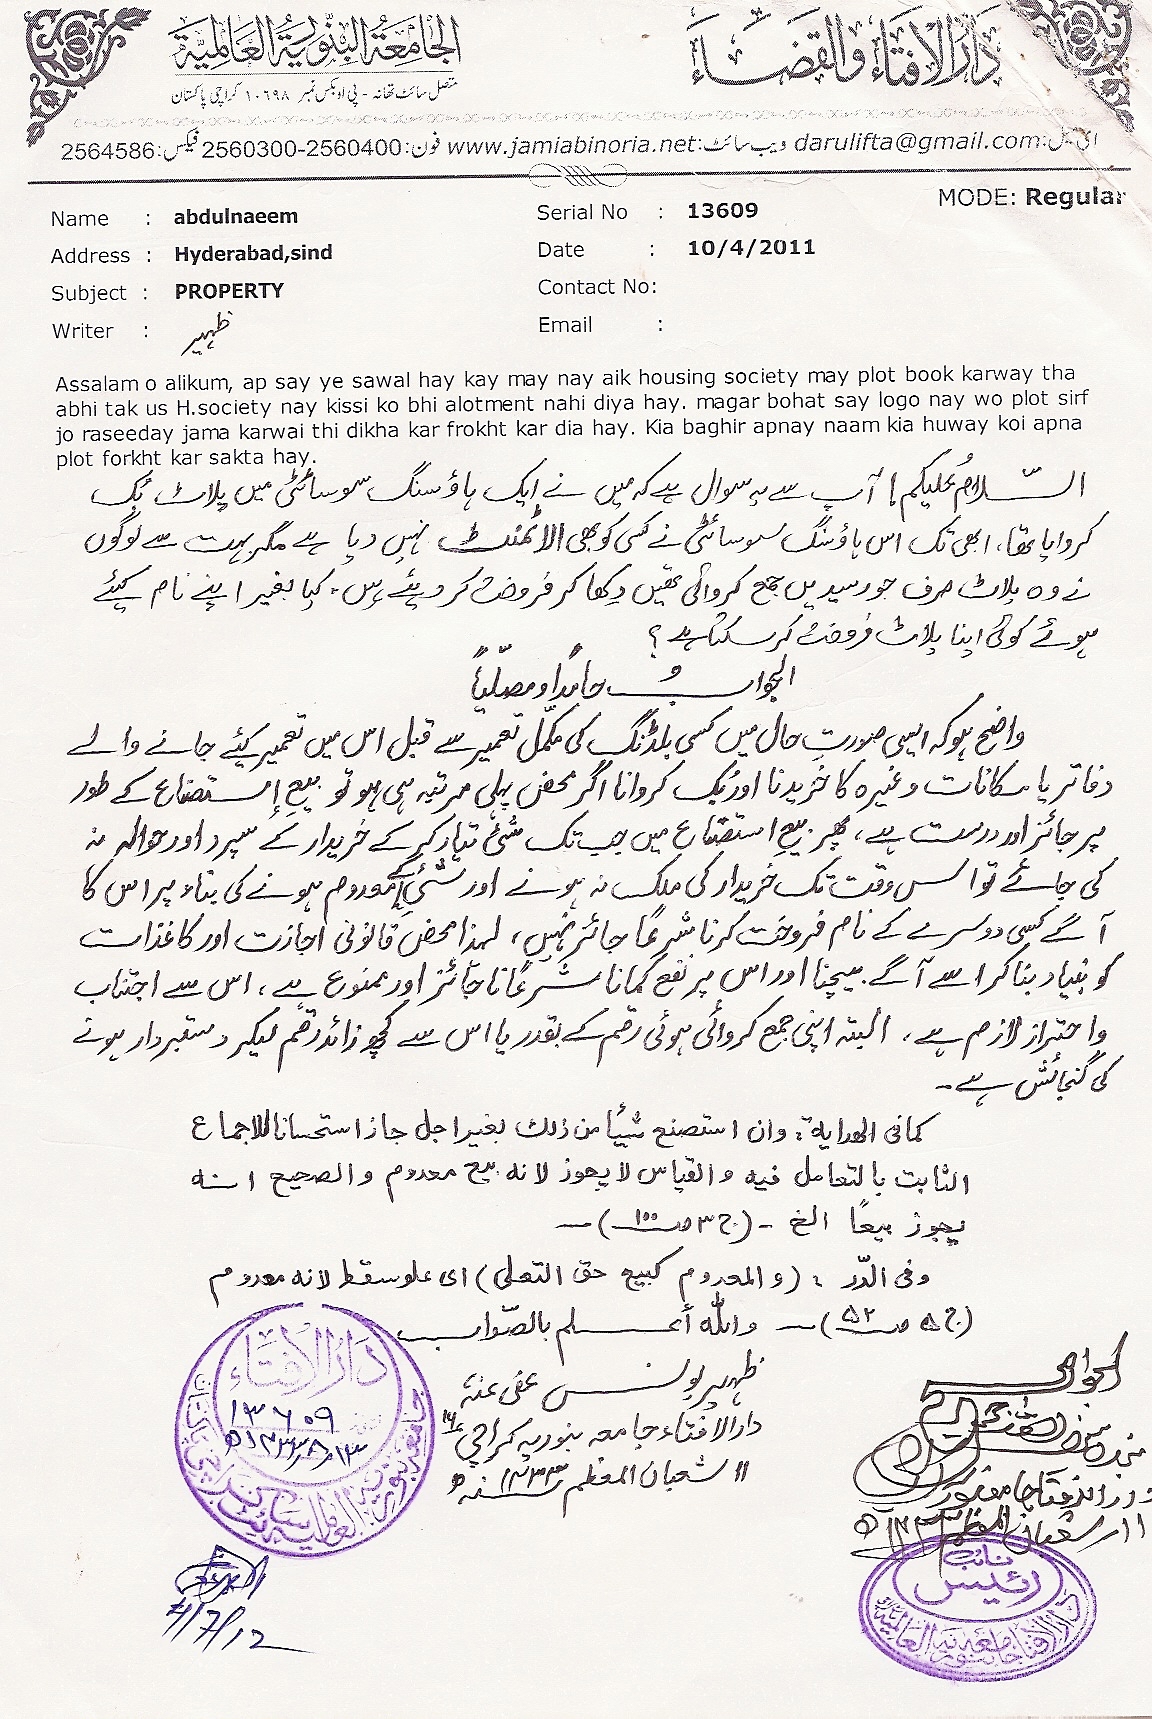 دَارُالاِفتَاء وَالقَضَاء
الجَامعَة البنّوريَة العَالميَّة
متصل سائٹ تھانہ - پی او بکس نمبر ۱۰۶۹۸ کراچی پاکستان
ای میل:darulifta@gmail.com ویب سائٹ:www.jamiabinoria.net فون:2560300-2560400 فیکس:2564586
MODE: Regular
Name : abdulnaeem Serial No : 13609
Address : Hyderabad,sind Date : 10/4/2011
Subject : PROPERTY Contact No:
Writer : ظہیر Email :
Assalam o alikum, ap say ye sawal hay kay may nay aik housing society may plot book karway tha
abhi tak us H.society nay kissi ko bhi alotment nahi diya hay. magar bohat say logo nay wo plot sirf
jo raseeday jama karwai thi dikha kar frokht kar dia hay. Kia baghir apnay naam kia huway koi apna
plot forkht kar sakta hay.
السّلامُ علیکم! آپ سے یہ سوال ہے کہ میں نے ایک ہاؤسنگ سوسائٹی میں پلاٹ بُک
کروایا تھا، ابھی تک اس ہاؤسنگ سوسائٹی نے کسی کو بھی الاٹمنٹ نہیں دیا ہے مگر بہت سے لوگوں
نے وہ پلاٹ صرف جو رسیدیں جمع کروائی تھیں دِکھا کر فروخت کر دیئے ہیں۔ کیا بغیر اپنے نام کیئے
ہوئے کوئی اپنا پلاٹ فروخت کر سکتا ہے؟
الجوابُ حامدًا و مصلّیاً
واضح ہو کہ ایسی صورتِ حال میں کسی بلڈنگ کی مکمّل تعمیر سے قبل اس میں تعمیر کیئے جانے والے
دفاتر یا مکانات وغیرہ کا خریدنا اور بُک کروانا اگر محض پہلی مرتبہ ہی ہو تو بیعِ إستصناع کے طور
پر جائز اور درست ہے، پھر بیعِ استصناع میں جب تک شئ تیار کر کے خریدار کے سپرد اور حوالہ نہ
کی جائے تو اس وقت تک خریدار کی ملک نہ ہونے اور شئ کے معدوم ہونے کی بناء پر اس کا
آگے کسی دوسرے کے نام فروخت کرنا شرعًا جائز نہیں، لہذا محض قانونی اجازت اور کاغذات
کو بنیاد بنا کر اسے آگے بیچنا اور اس پر نفع کمانا شرعًا ناجائز اور ممنوع ہے، اس سے اجتناب
و احتراز لازم ہے، البتہ اپنی جمع کروائی ہوئی رقم کے بقدر یا اس سے کچھ زائد رقم لیکر دستبردار ہونے
کی گنجائش ہے۔
کمافی الہدایة: وان استصنع شیأ من ذلک بغیر اجل جاز استحسانا للاجماع
الثابت بالتعامل فیه والقیاس لا یجوز لانه بیع معدوم والصحیح انه
یجوز بیعًا الخ - (ج۳ ص۱۰۰)
وفی الدّر: (والمعدوم کبیع حق التعلی) ای علو سقط لانه معدوم
(ج۵ ص۵۲) واللّٰه أعلم بالصّواب
ظہیر یونس عفی عنہ
دارالافتاء جامعہ بنوریہ کراچی ۱۶
۱۱ شعبان المعظم ۱۴۳۳ھ
الجواب صحیح
دارالافتاء جامعہ بنوریہ
۱۱ر شعبان المعظم ۱۴۳۳ھ
دَارُالاِفتَاء
۱۳۶۰۹
نائب
رئیس
دارالافتاء جامعہ بنوریہ العالمیہ
7/12